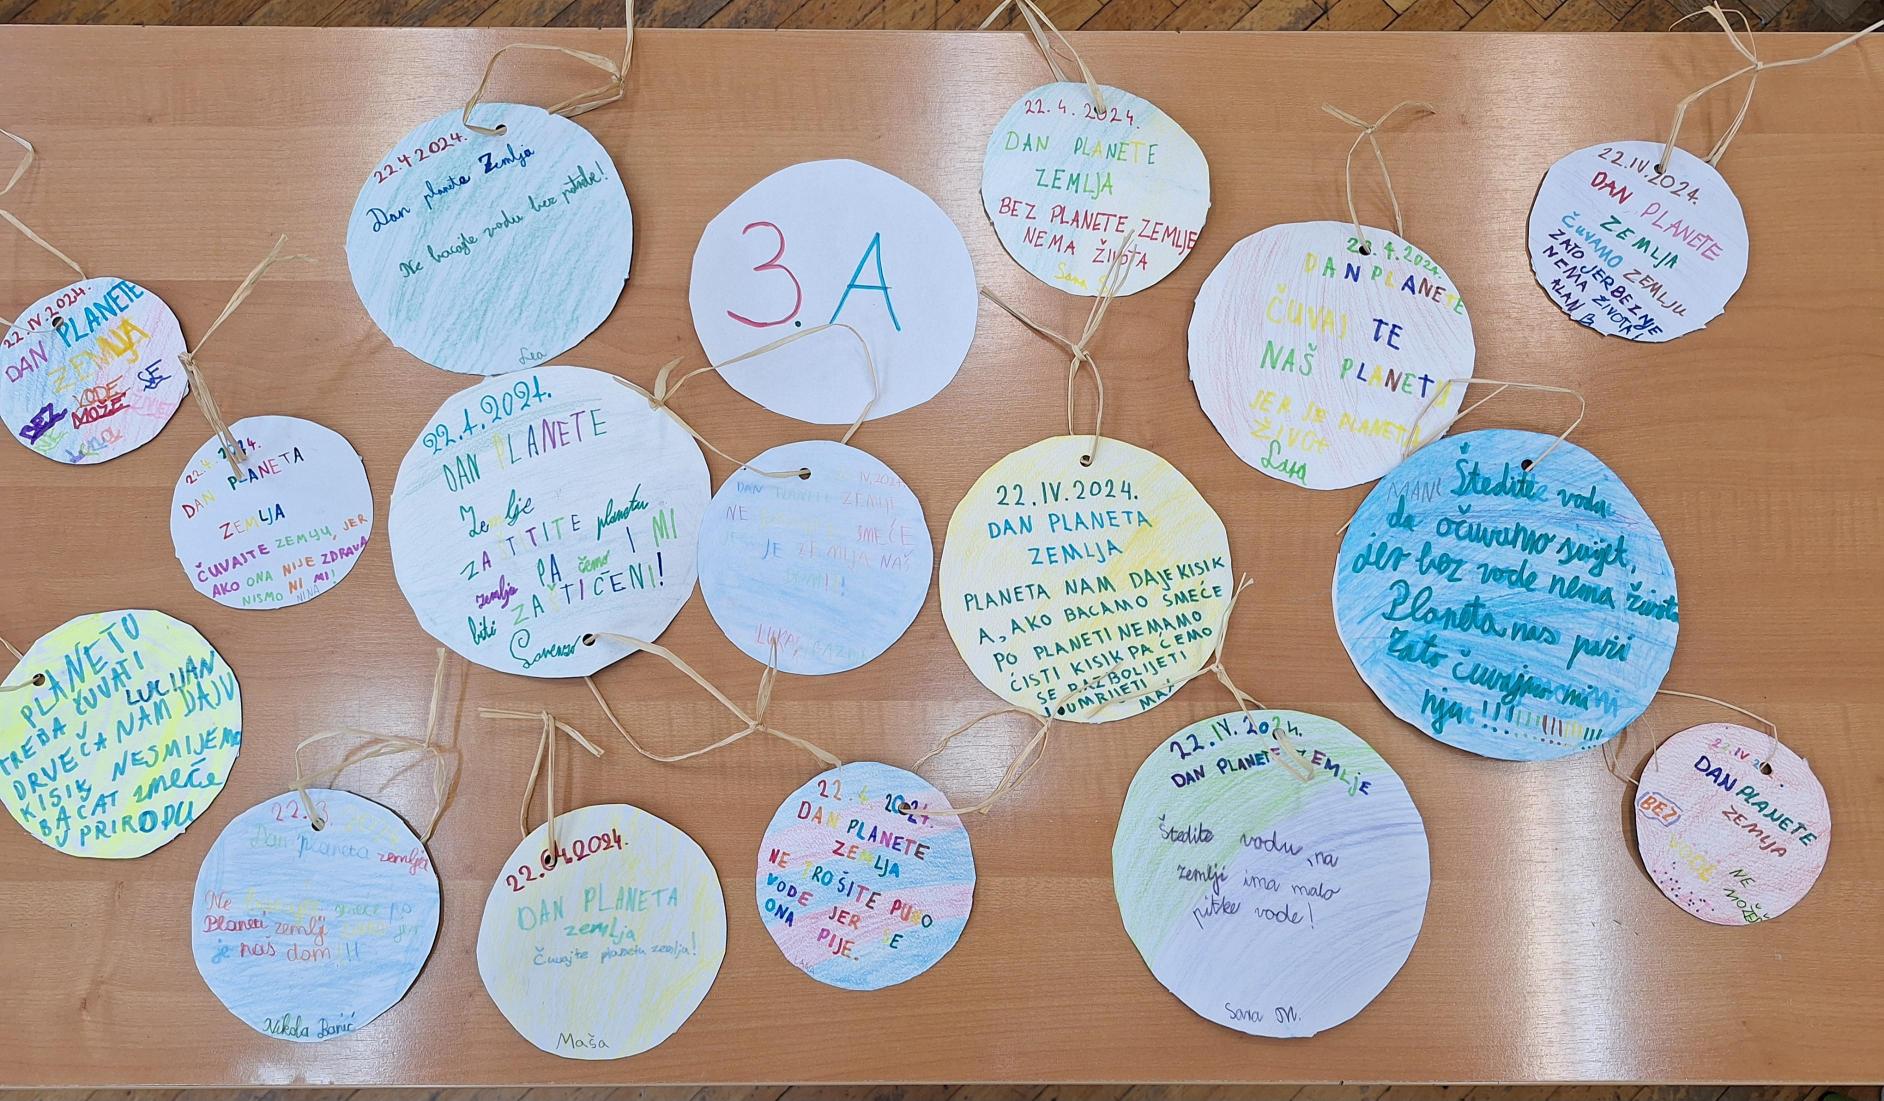 22.4.2024.
Dan planeta Zemlja
Ne bacajte vodu bez potrebe!
Lea
3. A
22.4.2024.
DAN PLANETE
ZEMLJA
BEZ PLANETE ZEMLJE
NEMA ŽIVOTA
Sara S
4.2024.
DAN PLANETE
ČUVAJ TE
NAŠ PLANET
JER JE PLANETA
ŽIVOT
22.IV.2024.
DAN PLANETE
ZEMLJA
ČUVAMO ZEMLJU
ZATO JER BEZ NJE
NEMA ŽIVOTA!
ALAN B.
22.IV.2024.
DAN PLANETE
ZEMLJA
BEZ VODE SE
NE MOŽE ŽIVET
Lena
22.4.2024.
DAN PLANETA
ZEMLJA
ČUVAJTE ZEMLJU, JER
AKO ONA NIJE ZDRAVA
NISMO NI MI!
NINA
22.4.2024.
DAN PLANETE
Zemlje
ZAŠTITITE planetu
zemlju PA ćemo I MI
biti ZAŠTIĆENI!
Lovenso
IV.2024
DAN PLANETE ZEMLJE
NE SMEĆE
JE ZEMLJA NAŠ
DOM!!!
LUKA
22.IV.2024.
DAN PLANETA
ZEMLJA
PLANETA NAM DAJE KISIK
A, AKO BACAMO SMEĆE
PO PLANETI NEMAMO
ČISTI KISIK PA ĆEMO
SE RAZBOLIJETI
I UMRIJETI
MAX
Štedite vodu
da očuvamo svijet,
jer bez vode nema života
Planeta nas pazi
Zato čuvajmo i mi
nju!!!!!!!!!!!!!
PLANETU
TREBA ČUVATI
LUCIJAN
DRVEĆA NAM DAJU
KISIK NESMIJEMO
BACAT smeće
U PRIRODU
22.
Dan planeta zemlja
Ne bacajte smeće po
Planeti zemlji jer
je naš dom !!!
Nikola Banić
22.04.2024.
DAN PLANETA
zemlja
Čuvajte planetu zemlju!
Maša
22. 2024.
DAN PLANETE
ZEMLJA
NE TROŠITE PUNO
VODE JER SE
ONA PIJE.
22.IV.2024.
DAN PLANETE ZEMLJE
Štedite vodu, na
zemlji ima malo
pitke vode!
Sara M.
22.IV.20
DAN PLANETE
ZEMLJA
BEZ
VODE NE
MOŽEŠ